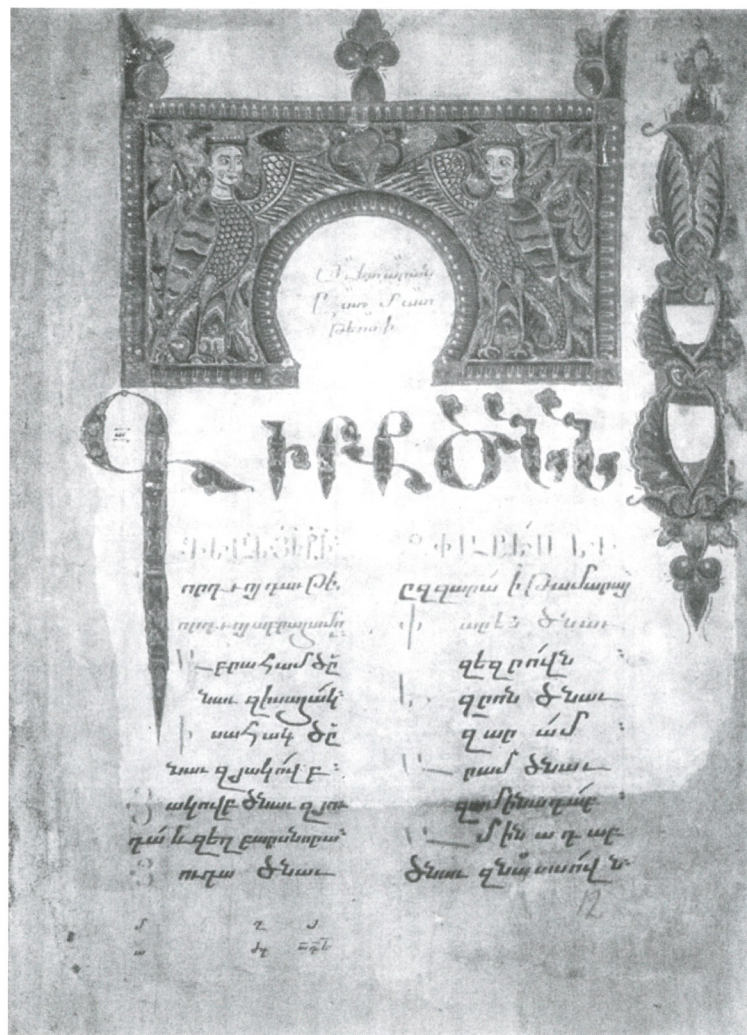 Աւետարան
Ըստ Մատ
թեոսի
ԳԻՐՔ ԾՆՆ
որդւոյ դաւթի.
որդւոյ աբրահամու
Աբրահամ ծը
նաւ զիսահակ:
Իսահակ ծը
նաւ զյակովբ:
Յակովբ ծնաւ զյու
դա և զեղբարսնորա:
Յուդա ծնաւ
ԶՓԱՐԷՍ ԵՒ
ըզզարա ի թամարայ
Փարէս ծնաւ
զեզրովն :
Եզրոն ծնաւ
զարամ :
Արամ ծնաւ
զամինադաբ :
Ամինադաբ
ծնաւ զնաասովն:
12